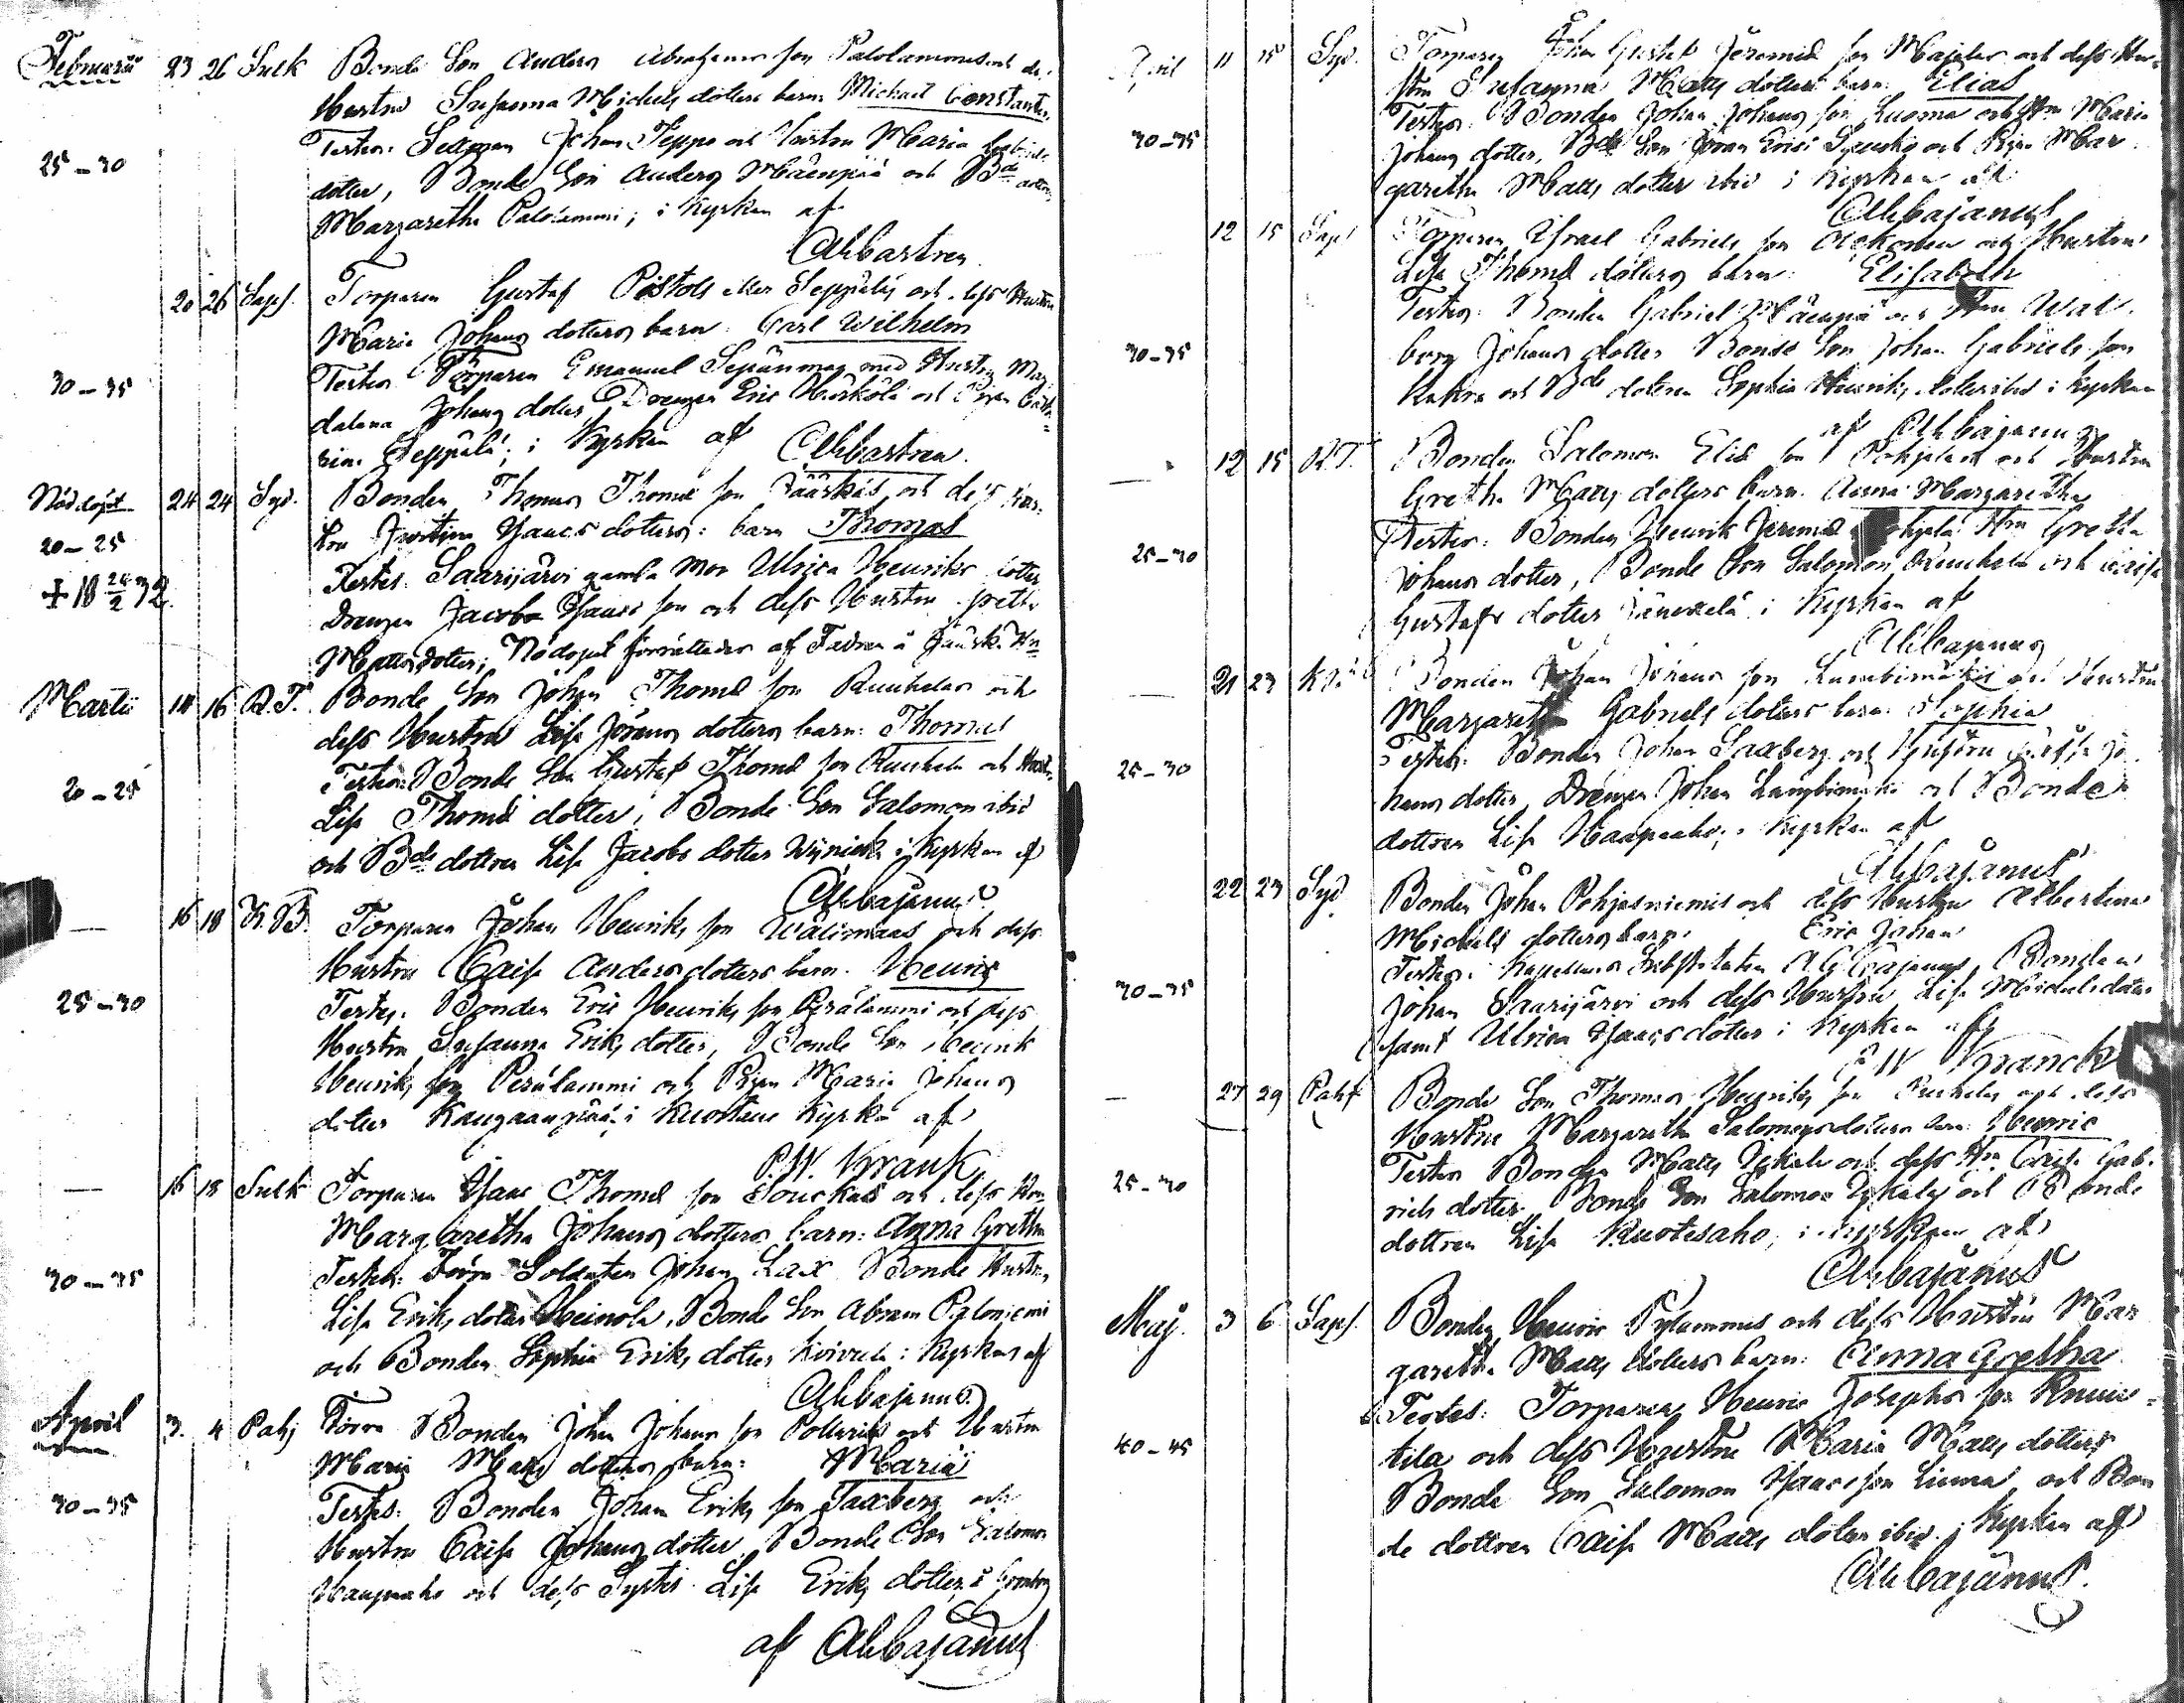 Februarii 23 26 Sulk Bonde Son Anders Abrahams son Palolammis och des
Hustru Susanna Michels dotters barn: Michael Constantin
Testes: Johan Seppo och Hustru Maria Gabriels
25-30
dotter, Bonde Son Anders Mäenpää och Bde dottren
Margaretha Palolammi; i Kyrkan af
AhCastren.
20 26 Saps. Torparen Gustaf Pistols eller Seppäläs och dess Hustru
Maria Johans dotters barn: Carl Wilhelm
Testes Torparen Emanuel med Hustru Mag
30-35
dalena Johans dotter, Drengen Eric Härkölä och Pigan Catha
rina Seppälä; i Kyrkan af AhCastren.
Nöddöpt 24 24 Syd. Bonden Thomas Thomæ son Jääskäs och dess Hus-
tru Justina Isaacs dotters: barn Thomas
20-25
Testes: Saarijärvi gamla Mor Ulrica Henriks dotter
+ 18 24/2 32.
Drengen Jacob Isaacs son och dess Hustru Greta
Matts dotter; Nöddopet förrättades af Fadren å Jääsk. Hn
Martii 14 16 R.T. Bonde Son Johan Thomæ son Ruuhelas och
dess Hustru Lisa Johans dotters barn: Thomas
Testes: Bonde Son Gustaf Thomæ son Ruuhela och Hustru
20-25
Lisa Thomæ dotter; Bonde Son Salomon ibid
och Bde dottren Lisa Jacobs dotter i Kyrkan af
AhCajanus
— 16 18 K.B. Torparen Johan Henriks son Wälimaas och dess
Hustru Caisa Anders dotters barn: Henric
25-30
Testes: Bonden Eric Henriks son Perälammi och dess
Hustru Susanna Eriks dotter, Bonde Son Henrik
Henriks son Perälammi och Pigan Maria Johans
dotter Kangaanpää; i Kuortane Kyrka af
P.W. Krank
— 16 18 Sulk Torparen Isaac Thomæ son och dess Hru
Margaretha Johans dotters barn: Anna Gretha
Testes: Förra Soldaten Johan Lax Bonde Hustru
30-35
Lisa Eriks dotter Heinola, Bonde Son Abram Paloniemi
och Bonden Sophia Eriks dotter i Kyrkan af
AhCajanus.
April 3. 4 Pahj Förra Bonden Johan Johans son och Hustru
Maria Matts dotters barn: Maria
30-35
Testes: Bonden Johan Eriks son Saxberg och
Hustru Caisa Johans dotter, Bonde Son Salomon
Haapaaho och dess Syster Lisa Eriks dotter,
af AhCajanus
April 11 15 Syd. Torparen Johan Gustaf Jeremiæ son och dess Hu-
stru Susanna Matts dotters barn: Elias
30-35
Testes: Bonden Johan Johans son Luoma och Hru Maria
Johans dotter, Bde Son Johan och Pigan Mar
garetha Matts dotter ibid i Kyrkan af
AhCajanus
12 15 Saps Torparen Israel Gabriels son och Hustru
Lisa Thomæ dotters barn: Elisabeth
Testes: Bonden Gabriel Mäenpää och Hru Wal
30-35
borg Johans dotter Bonde Son Johan Gabriels son
och Bde dottren Sophia Henriks dotter ibid i Kyrkan
af AhCajanus
— 12 15 R.T. Bonden Salomon Eliæ son Pohjolas och Hustru
Gretha Matts dotters barn: Anna Margaretha
25-30
Testes: Bonden Henrik Jeremiæ Hru Gretha
Johans dotter, Bonde Son Salomon Ruuhela och
Gustafs dotter i Kyrkan af
AhCajanus
— 21 23 Bonden Johan Johans son Lambimäkis och Hustru
Margaretha Gabriels dotters barn: Sophia
25-30
Testes: Bonden Johan Saxberg och Hustru Caisa Jo
hans dotter, Drengen Johan Lambimäki och Bonde
dottren Lisa Haapaaho; i Kyrkan af
AhCajanus
22 23 Syd Bonden Johan Pohjasniemis och dess Hustru Albertina
Michels dotters barn: Eric Johan
30-35
Testes: Kapellans Substituten AGCajanus, Bonden
Johan Saarijärvi och dess Hustru Lisa Michels dotter
samt Ulrica Isaacs dotter i Kyrkan af
PW Kranck
— 27 29 Pahj Bonde Son Thomas Henriks son Ruuhelas och dess
Hustru Margaretha Salomons dotters barn: Henric
25-30
Testes Bonden Matts och dess Hru Caisa Gab-
riels dotter Bonde Son Salomon och Bonde
dottren Lisa Kuotesaho; i Kyrkan af
AhCajanus
Maj. 3 6 Saps. Bonden Henric Pylammis och dess Hustru Mar
garetha Matts dotters barn: Anna Gretha
Testes: Torparen Henric Josephs son Knuu-
40-45
tila och dess Hustru Maria Matts dotter,
Bonde Son Salomon Isaacs son Linna och Bon
de dottren Caisa Matts dotter ibid. i Kyrkan af
AhCajanus.